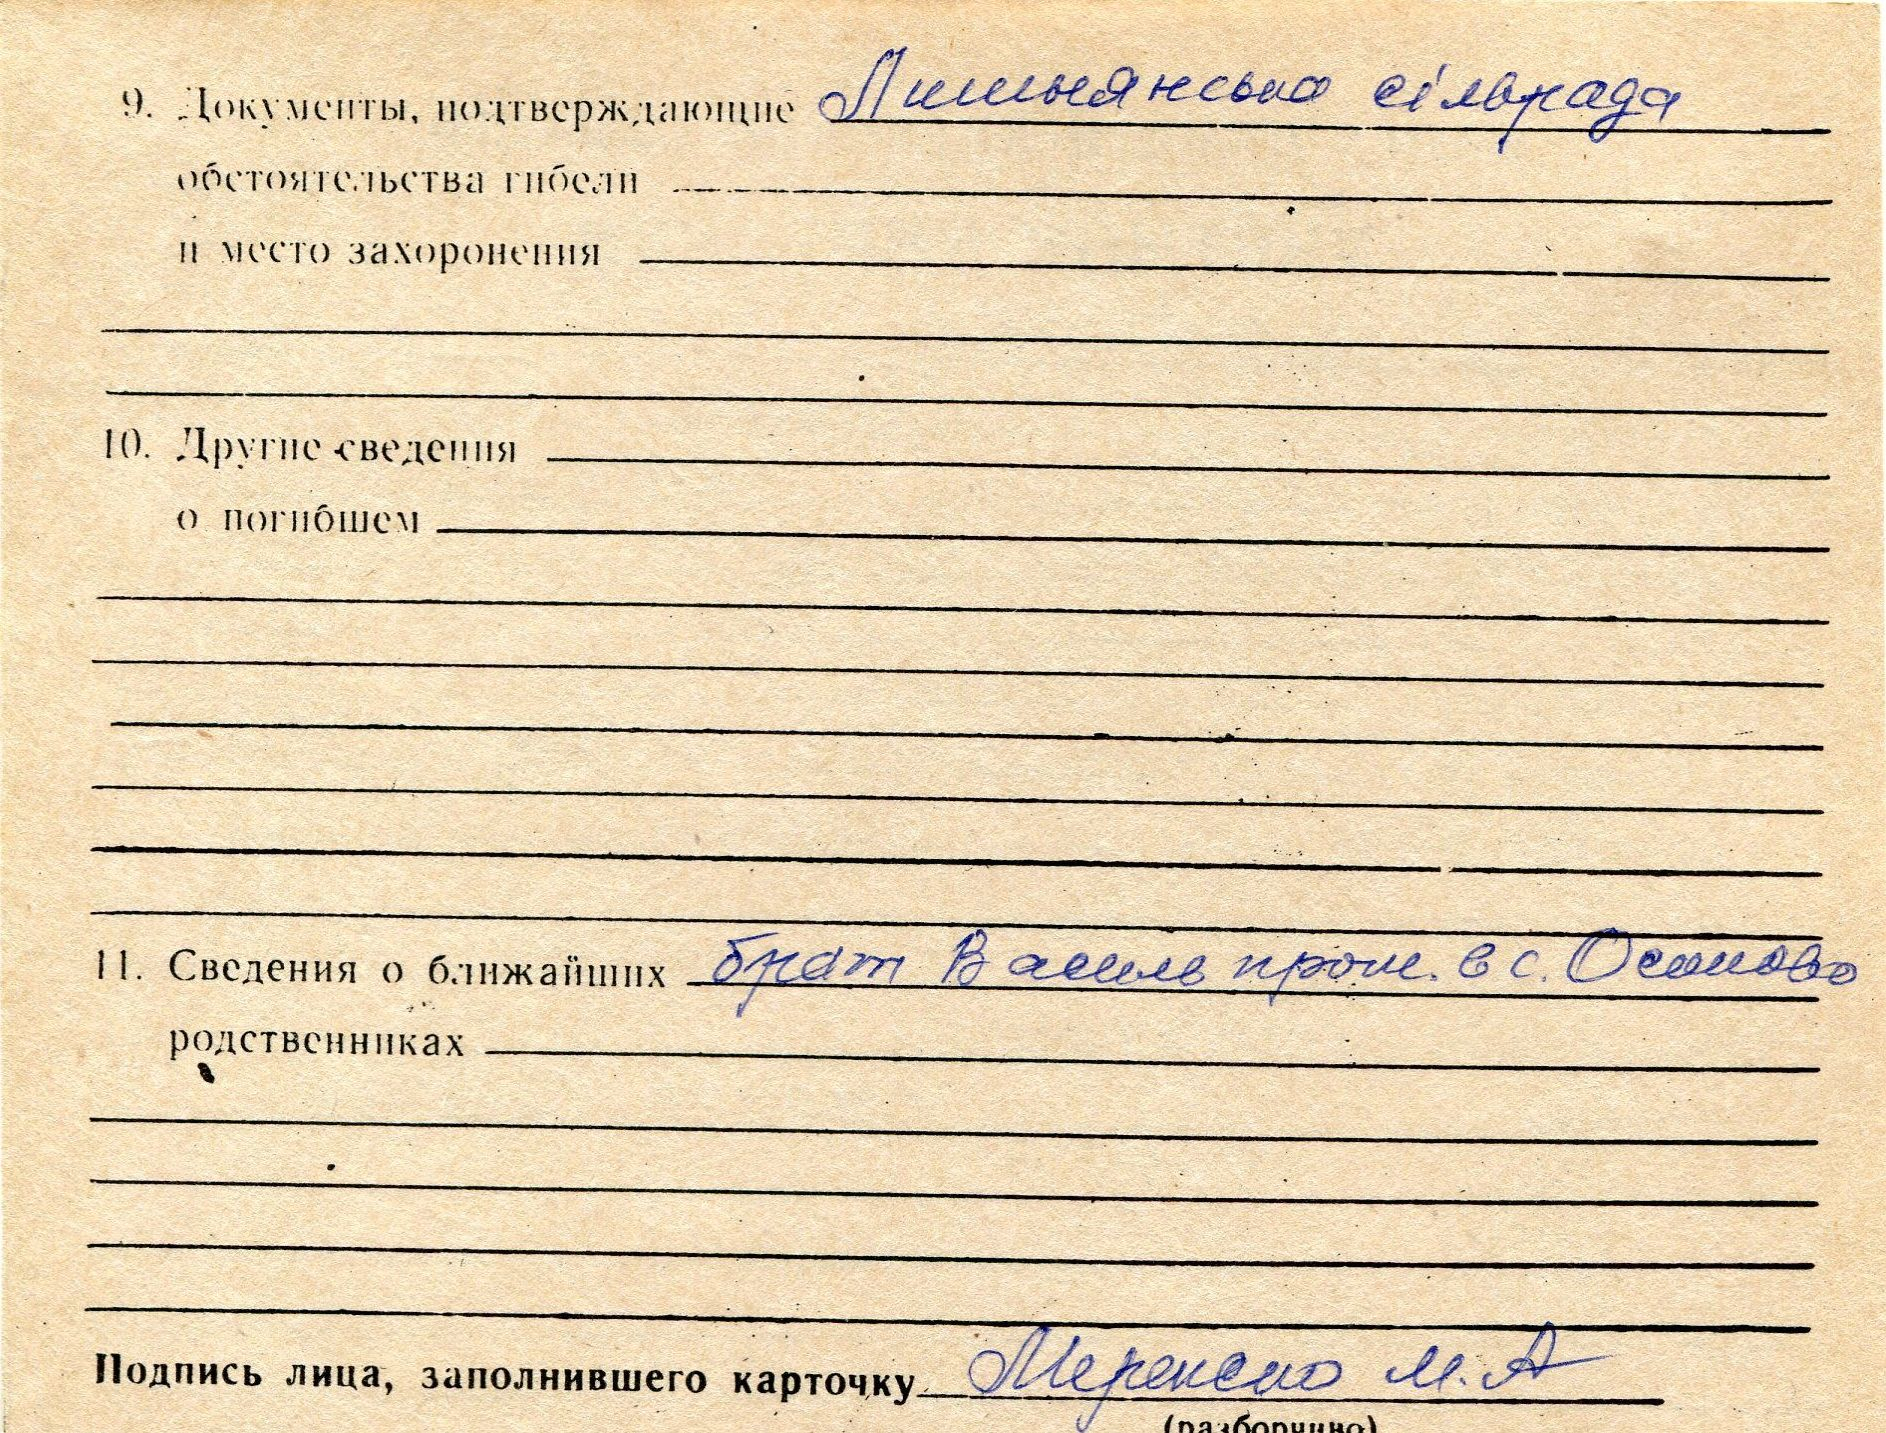 9. Документы, подтверждающие Лишнянська сільрада
обстоятельства гибели
и место захоронения
10. Другие сведения
о погибшем
11. Сведения о ближайших брат Василь прож. в с. Осикове
родственниках
Подпись лица, заполнившего карточку М. А
(разборчиво)